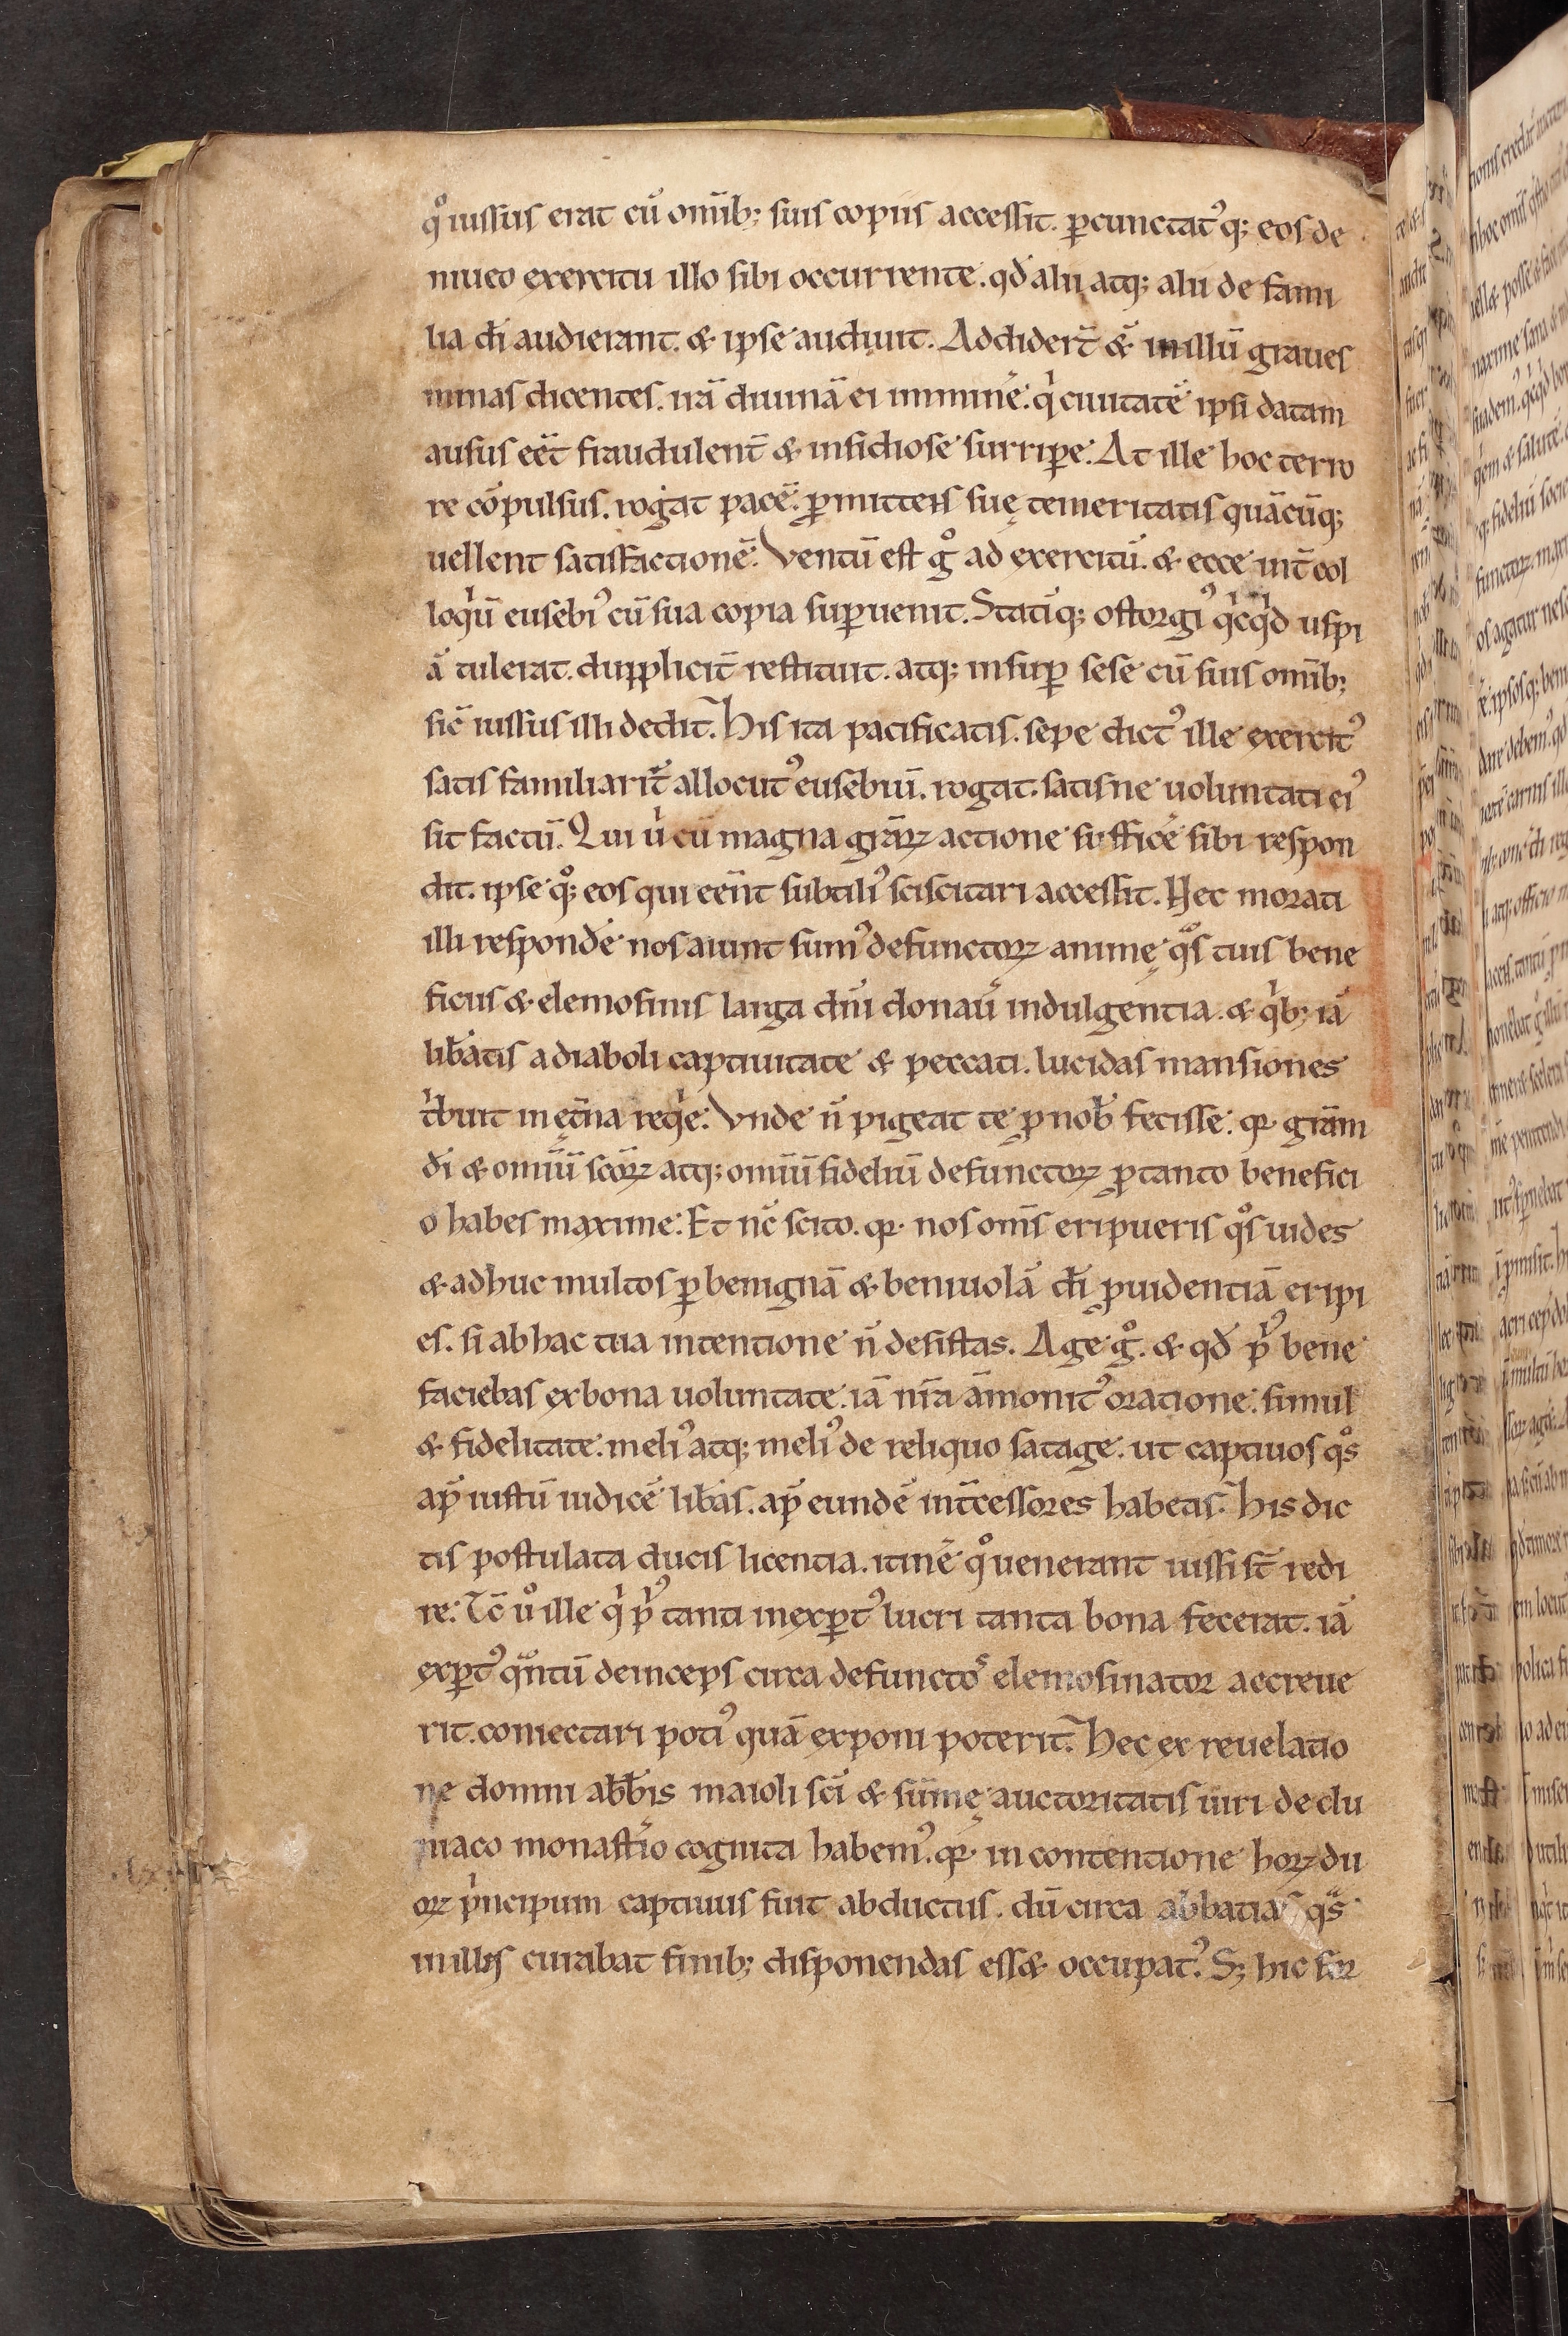 qͦ iussus erat cū om̄ib; suis copiis accessit. ꝑcunctatꝰq; eos de
niueo exercitu illo sibi occurrente. qd̄ alii atq; alii de fami
lia dn̄i audierant. & ipse audiuit. Addider̄t & in illū graues
minas dicentes. irā diuinā ei imminē. qͥ ciuitatē ipsi datam
ausus eēt fraudulent̄ & insidiose surriꝑe. At ille hoc terro
re cōpulsus. rogat pacē. ꝑmittens suę temeritatis quācūq;
uellent satisfactionē. Ventū est gͦ ad exercitū. & ecce int̄ col
loqͥū eusebiꝰ cū sua copia suꝑuenit. Statīq; ostorgiꝰ qͥcqͥd uspi
ā tulerat. dupplicit̄ restituit. atq; insuꝑ sese cū suis om̄ib;
sic̄ iussus illi dedit. His ita pacificatis. sepe dictꝰ ille exercitꝰ
satis familiarit̄ allocutꝰ eusebiū. rogat. satisne uoluntati eiꝰ
sit factū. Qui u̓ cū magna gr̄aꝝ actione sufficē sibi respon
dit. ipse qͦ; eos qui eēnt subtiliꝰ sciscitari accessit. Nec morati
illi respondē nos aiunt sumꝰ defunctoꝝ animę qͦs tuis bene
ficiis & elemosinis larga dn̄i donau̓ indulgentia. & qͥb; iā
lib̄atis a diaboli captiuitate & peccati. lucidas mansiones
tͥbuit in ęt̄na reqͥe. Vnde n̄ pigeat te ꝓ nob̄ fecisse. qꝛ gr̄am
dī & omīū sc̄oꝝ atq; omīū fideliū defunctoꝝ ꝓ tanto benefici
o habes maxime. Et nc̄ scito. qꝛ nos om̄s eripueris qͦs uides
& adhuc multos ꝑ benignā & beniuolā dn̄i ꝓuidentiā eripi
es. si ab hac tua intentione n̄ desistas. Age gͦ. & qd̄ pͥꝰ bene
faciebas ex bona uoluntate. iā nr̄a āmonitꝰ oratione. simul
& fidelitate. meliꝰ atq; meliꝰ de reliquo satage. ut captiuos qͦs
ap̄ iustū iudicē lib̄as. ap̄ eundē int̄cessores habeas. His dic
tis postulata ducis licentia. itinē qͦ uenerant iussi st̄ redi
re. Tc̄ uͦ ille qͥ pͥꝰ tanti inexꝑtꝰ lucri tanta bona fecerat. iā
exꝑtꝰ qͣntū deinceps circa defunctoˢ elemosinator accreue
rit. coniectari potiꝰ quā exponi poterit. Hec ex reuelatio
ne domni abb̄is maioli sc̄i & sūmę auctoritatis uiri de clu
niaco monast̄io cognita habemꝰ. qꝛ in contentione hoꝝ du
oꝝ pͥncipum captiuus fuit abductus. dū circa abbatias qͣs
in illis curabat finib; disponendas ess& occupatꝰ. S; hic for